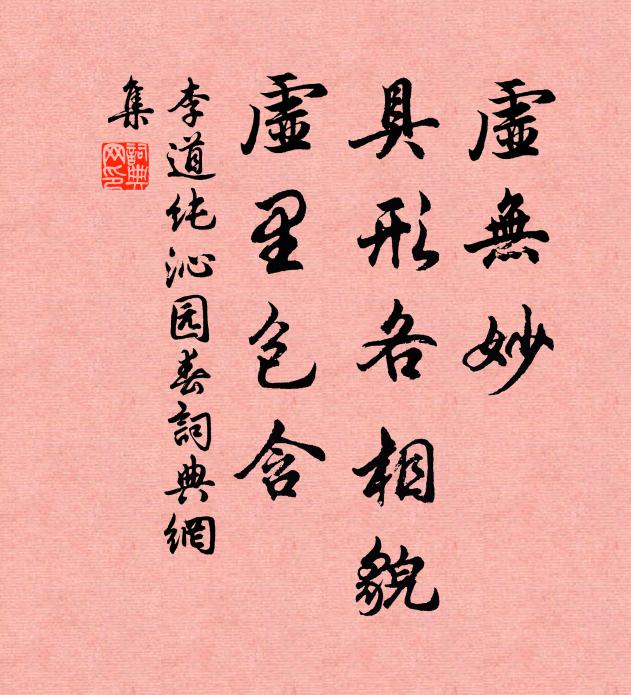 虛無妙
具形各相貌
虛里包含
李道纯沁园春詞典網
集
詞典網印